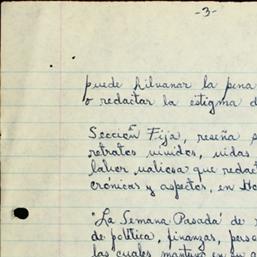 -3-
puede hilvanar la pena
o redactar la estigma d
Sección Fija, reseña
retratos vividos, vidas
labor valiosa que redac
crónicas y aspectos, en
"La Semana Pasada" de
de política, finanzas, pers
las cuales mantuvo en su